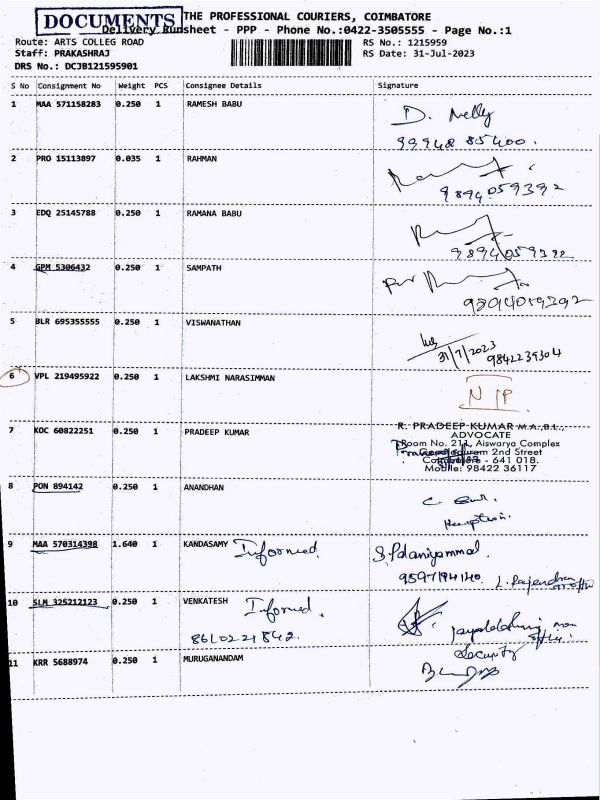 DOCUMENTS
THE PROFESSIONAL COURIERS, COIMBATORE
Delivery Runsheet - PPP - Phone No.:0422-3505555 - Page No.:1
Route: ARTS COLLEG ROAD
RS No.: 1215959
Staff: PRAKASHRAJ
RS Date: 31-Jul-2023
DRS No.: DCJB121595901
S No Consignment No Weight PCS Consignee Details Signature
1 MAA 571158283 0.250 1 RAMESH BABU
D. Nelly
99948 85400.
2 PRO 15113897 0.035 1 RAHMAN
9894059392
3 EDQ 25145788 0.250 1 RAMANA BABU
4 GPM 5306432 0.250 1 SAMPATH
5 BLR 695355555 0.250 1 VISWANATHAN
31/7/2023
9842239304
6 VPL 219495922 0.250 1 LAKSHMI NARASIMMAN
N/P.
7 KOC 60822251 0.250 1 PRADEEP KUMAR
R. PRADEEP KUMAR M.A.,B.L.,
ADVOCATE
Room No. 211, Aiswarya Complex
2nd Street
Coimbatore - 641 018.
Mobile: 98422 36117
8 PON 894142 0.250 1 ANANDHAN
Reception.
9 MAA 570314398 1.640 1 KANDASAMY Informed
9597194140
10 SLM 325212123 0.250 1 VENKATESH Informed.
8610221842
Security
11 KRR 5688974 0.250 1 MURUGANANDAM